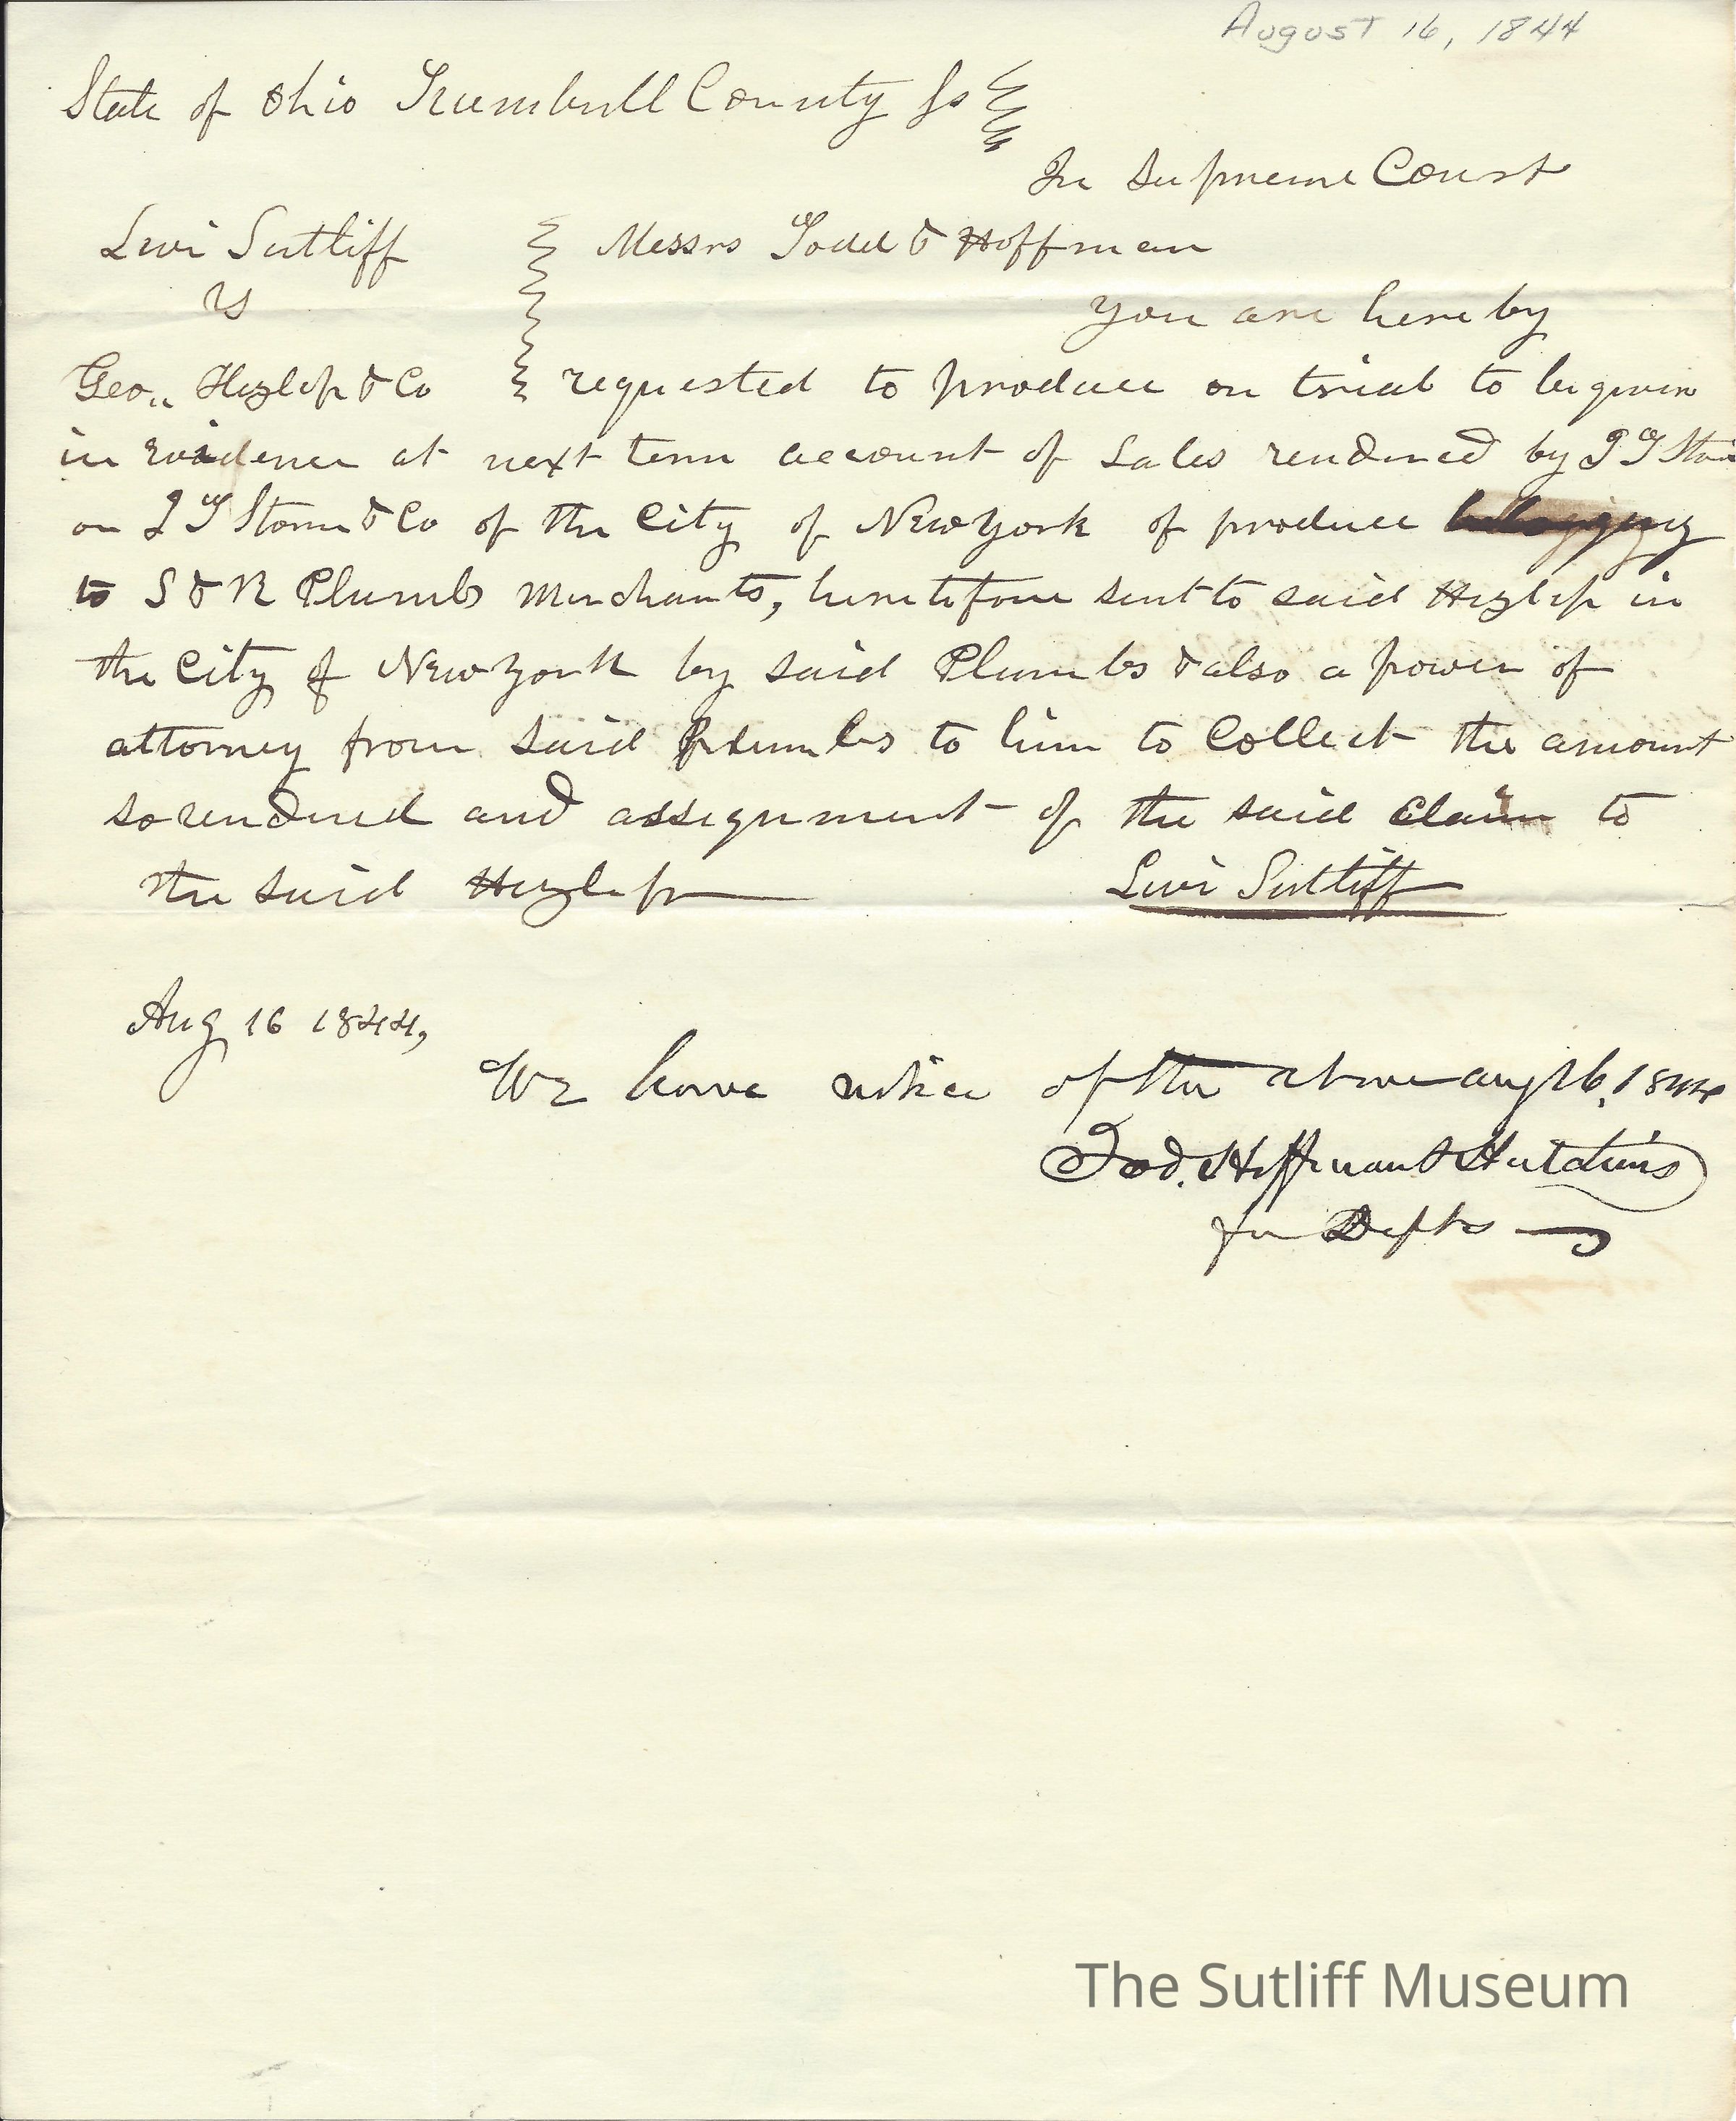 August 16, 1844
State of Ohio Trumbull County Ss
In Supreme Court
Levi Sutliff Messrs Todd & Hoffman
vs you are hereby
Geo,, Hezlep & Co requested to produce on trial to be given
in evidence at next term account of Sales rendered by J T Stone
or J T Stone & Co of the City of New York of produce belonging
to S & R Plumbs Merchants, heretofore sent to said Hezlep in
the City of New York by said Plumbs & also a power of
attorney from said Plumbs to him to Collect the amount
so rendered and assignment of the said Claim to
the said Hezlep Levi Sutliff
Aug 16 1844,
We have notice of the above aug 16, 1844
Tod, Hoffman & Hutchins
for Defts
The Sutliff Museum